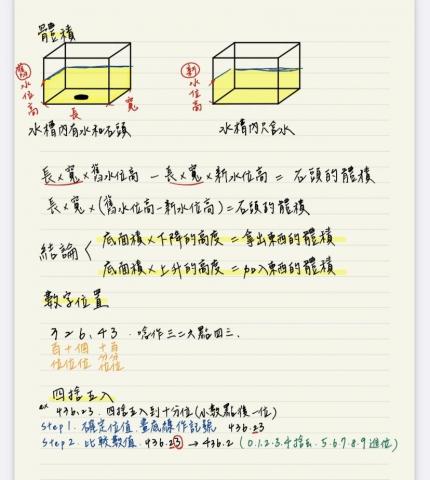 體積
舊 水位高
長
寬
新 水位高
水槽內有水和石頭
水槽內只含水
長×寬×舊水位高 - 長×寬×新水位高 = 石頭的體積
長×寬×(舊水位高-新水位高)=石頭的體積
結論
底面積×下降的高度 = 拿出東西的體積
底面積×上升的高度 = 加入東西的體積
數字位置
326.43 . 唸作三二六點四三.
百位 十位 個位 十分位 百分位
四捨五入
ex 436.23 . 四捨五入到十分位(小數點後一位)
step 1. 確定位值.畫底線作記號 436.23
step 2. 比較數值. 436.23 → 436.2 (0.1.2.3.4捨去. 5.6.7.8.9進位)